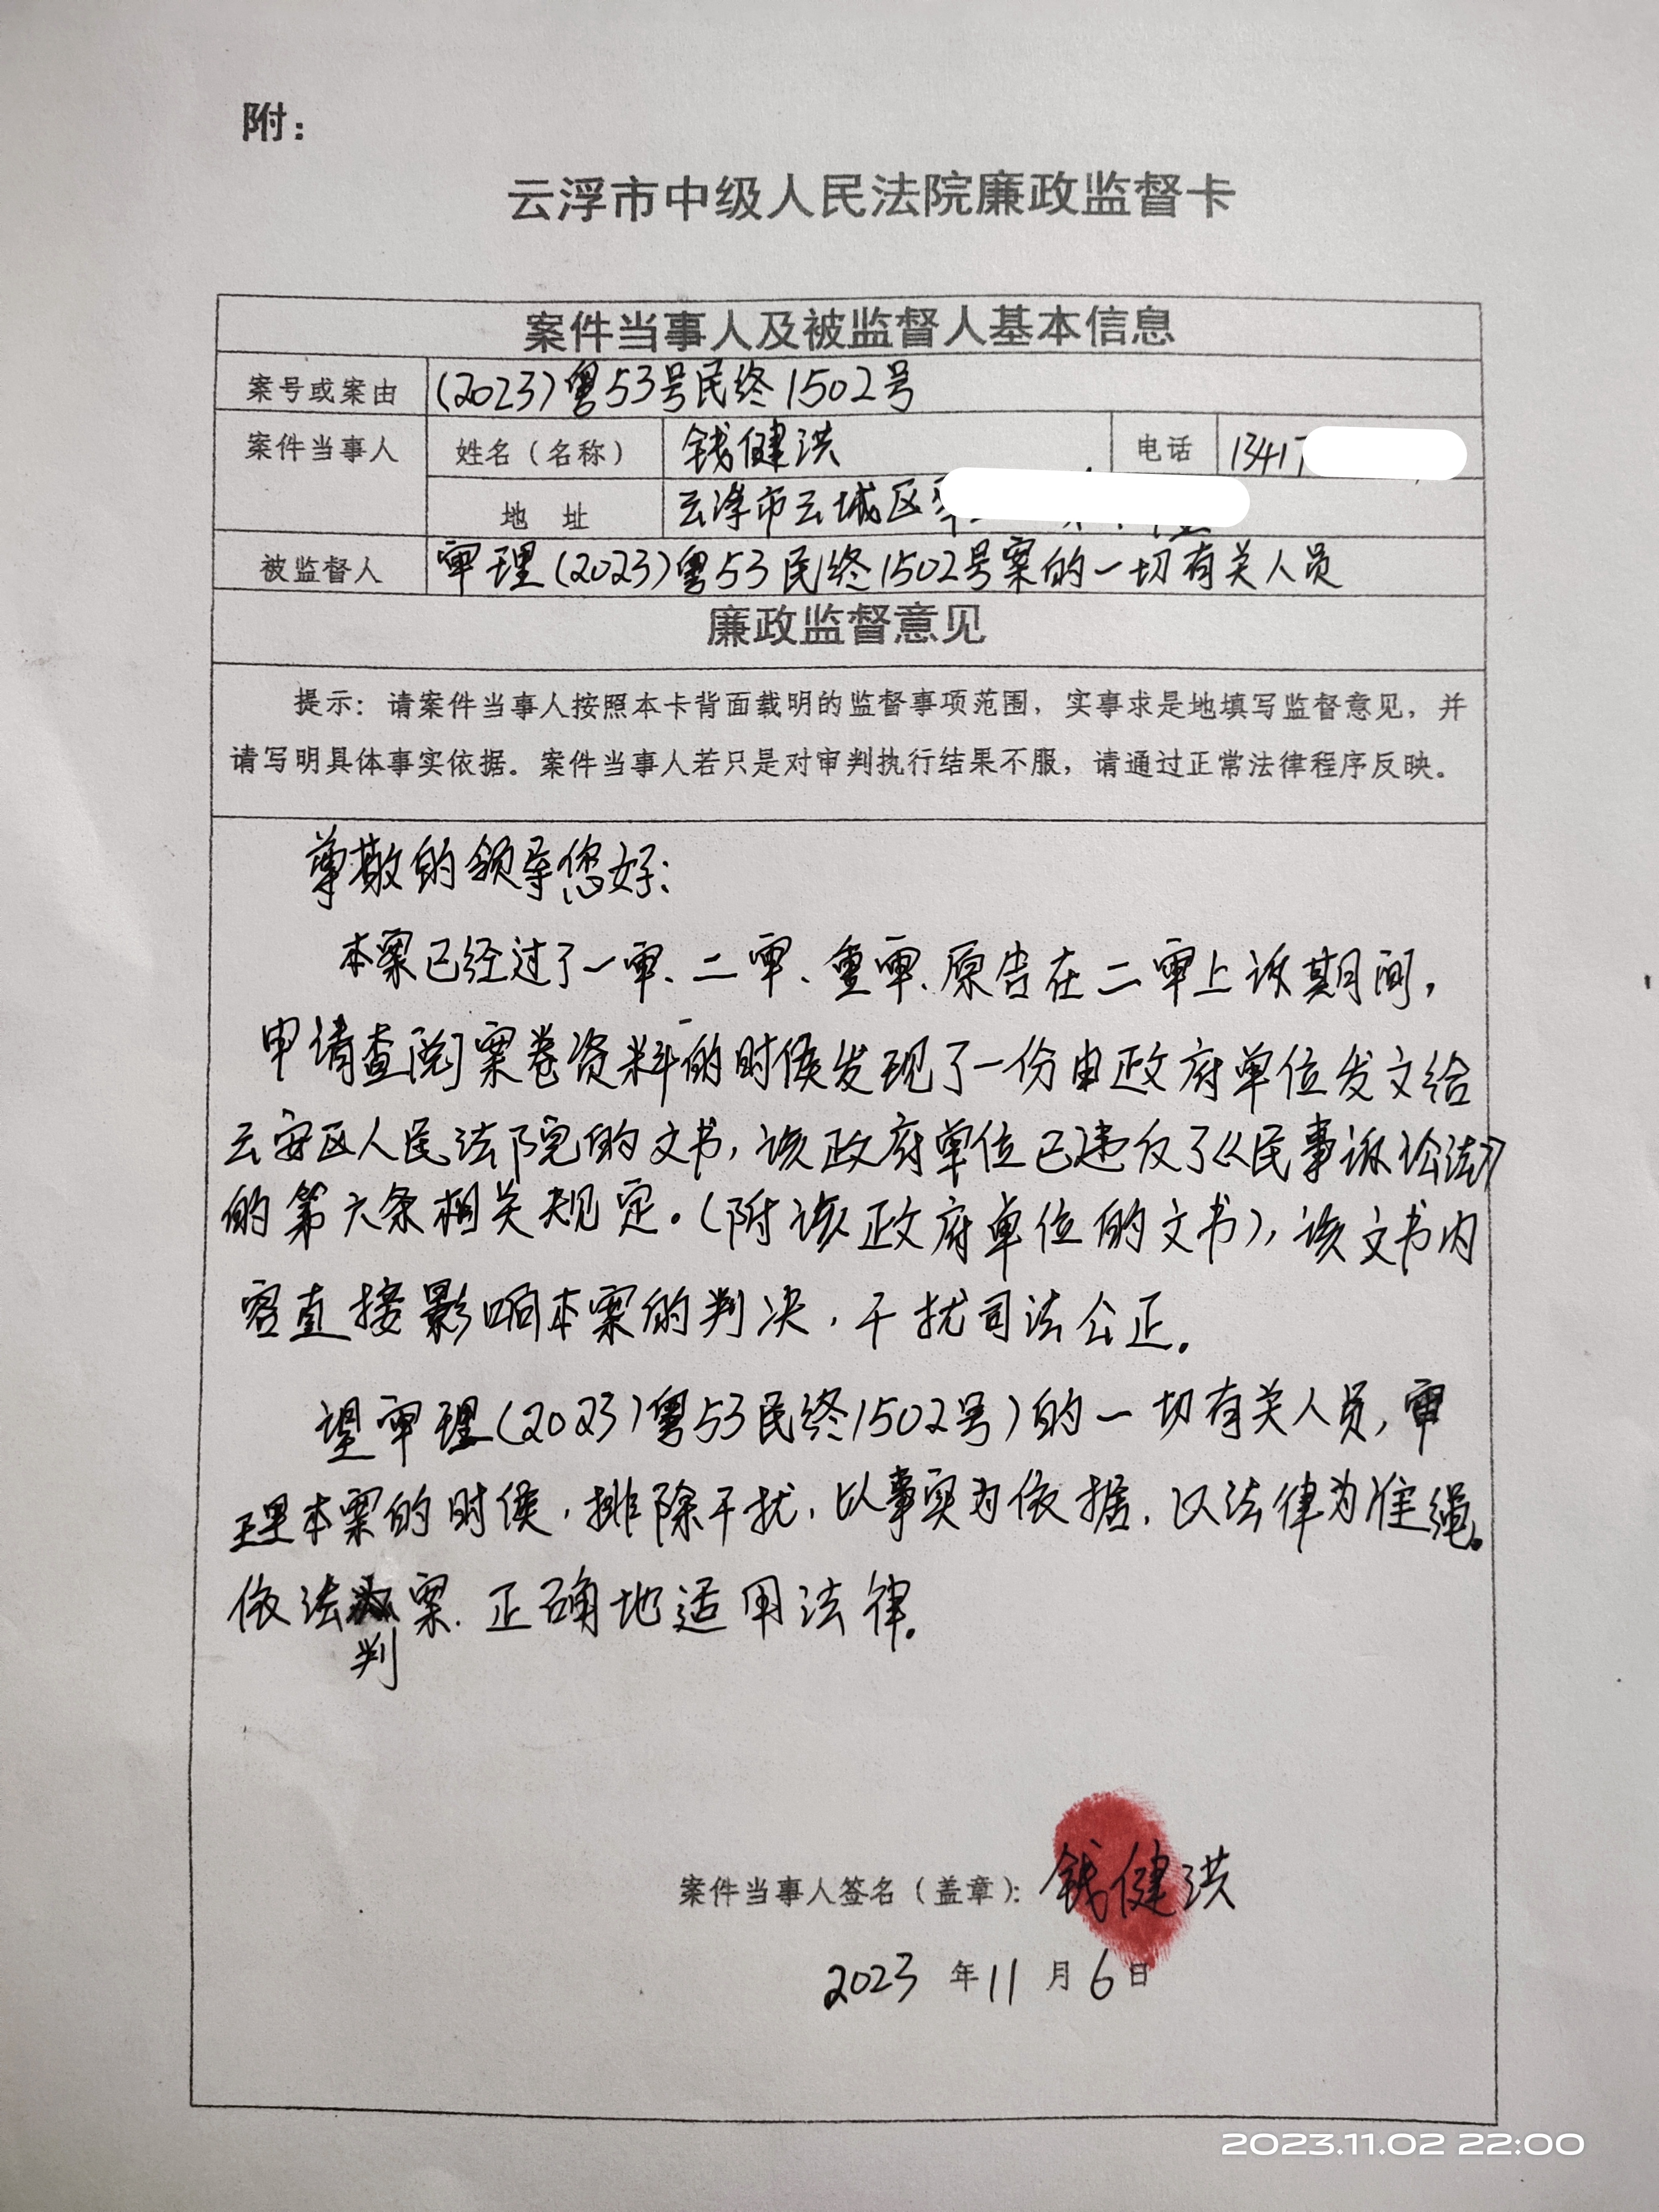 附：
云浮市中级人民法院廉政监督卡
案件当事人及被监督人基本信息
案号或案由 (2023)粤53号民终1502号
案件当事人 姓名（名称） 钱健洪 电话 13417
地 址 云浮市云城区
被监督人 审理(2023)粤53民终1502号案的一切有关人员
廉政监督意见
提示：请案件当事人按照本卡背面载明的监督事项范围，实事求是地填写监督意见，并
请写明具体事实依据。案件当事人若只是对审判执行结果不服，请通过正常法律程序反映。
尊敬的领导您好：
本案已经过了一审、二审、重审、原告在二审上诉期间，
申请查阅案卷资料的时候发现了一份由政府单位发文给
云安区人民法院的文书，该政府单位已违反了《民事诉讼法》
的第六条相关规定。(附该政府单位的文书)，该文书内
容直接影响本案的判决，干扰司法公正。
望审理(2023)粤53民终1502号)的一切有关人员，审
理本案的时候，排除干扰，以事实为依据，以法律为准绳。
依法判案．正确地适用法律。
案件当事人签名（盖章）：钱健洪
2023 年 11 月 6 日
2023.11.02 22:00